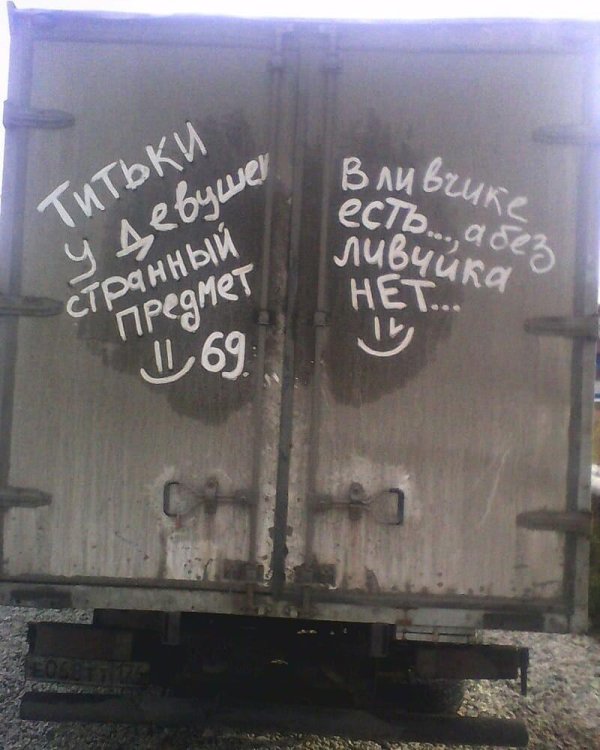 Титьки
у девушек
странный
предмет
69.
В ливчике
есть..., а без
ливчика
нет...